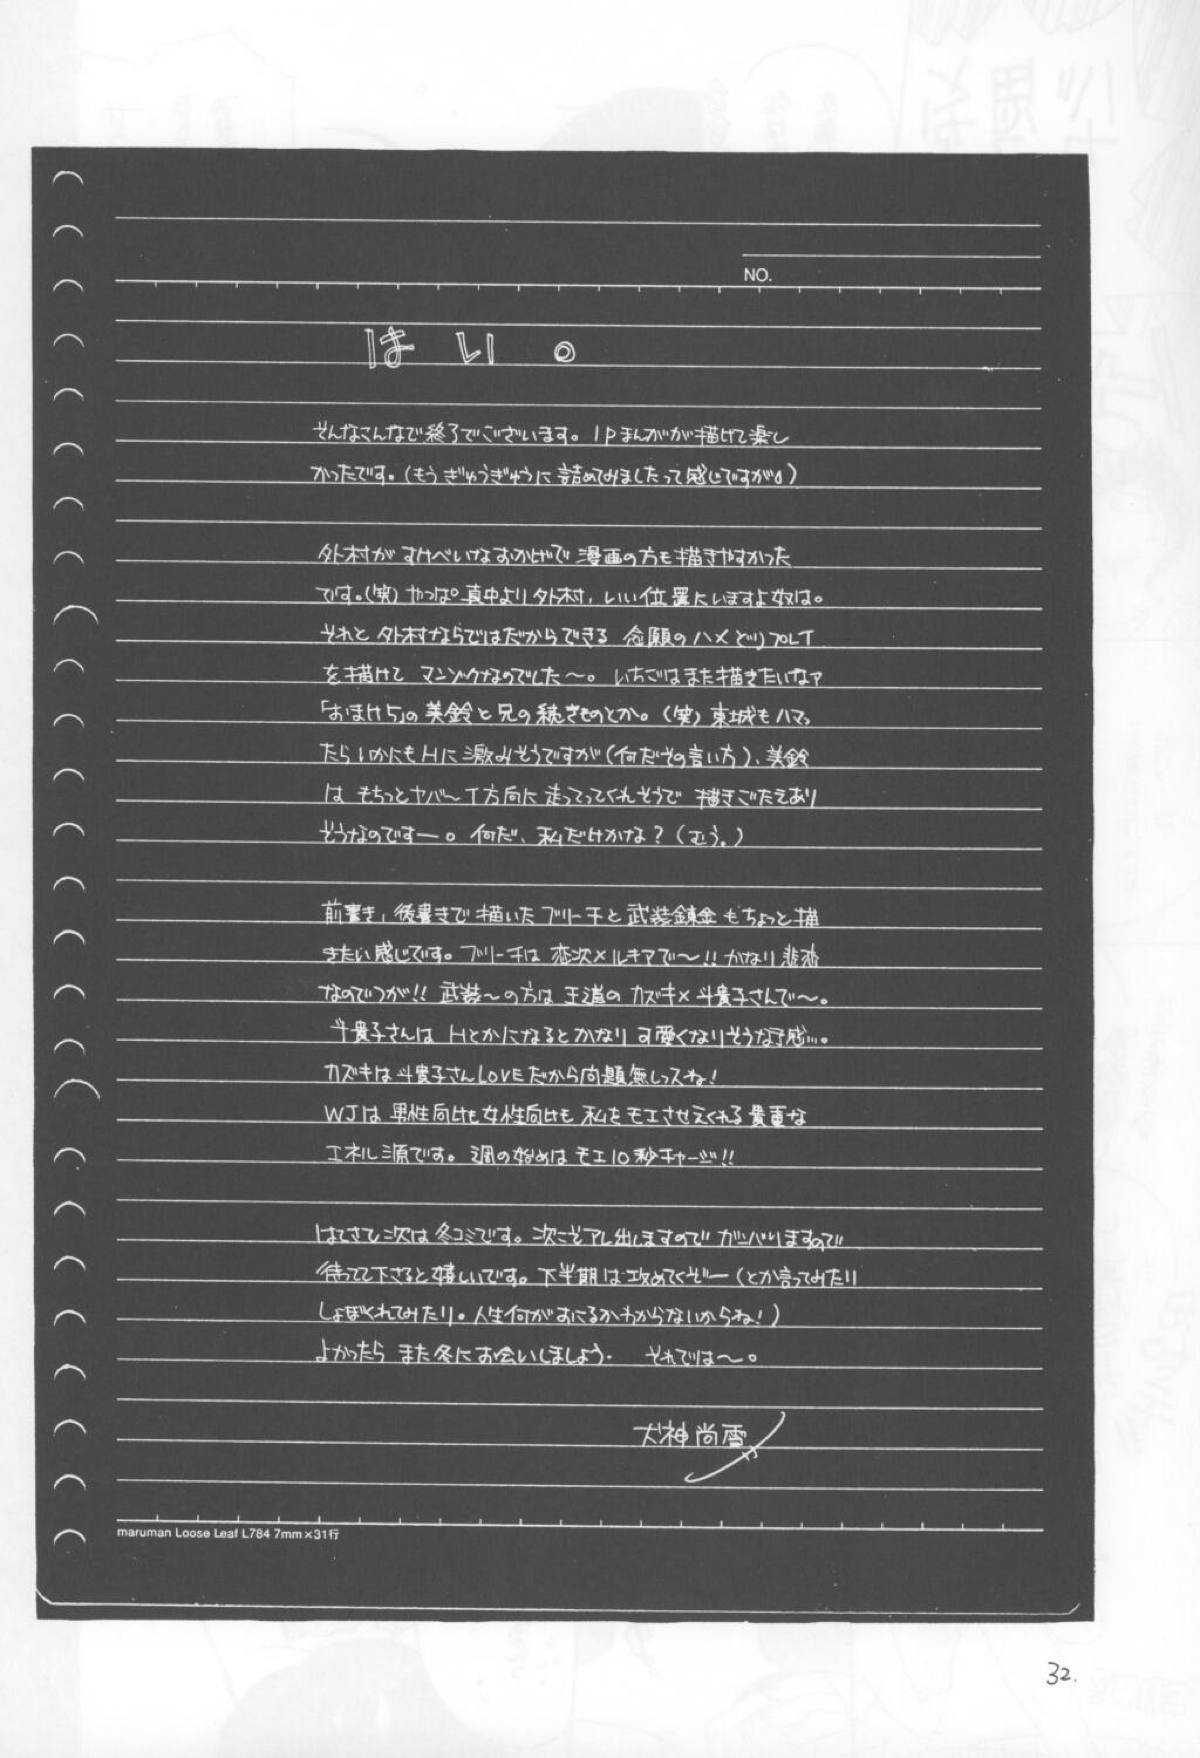 NO.
はい。
そんなこんなで終了でございます。1Pまんがが描けて楽し
かったです。(もうぎゅうぎゅうに詰めてみましたって感じですが)
外村がすけべいなおかげで漫画の方も描きやすかった
です。(笑)やっぱ真中より外村、いい位置にいますよ奴は。
それと外村ならではだからできる念願のハメどりプレイ
を描けてマンゾクなのでした〜。いちごはまた描きたいなァ
「おまけ5」の美鈴と兄の続きものとか。(笑)東城もハマっ
たらいかにもHに激みそうですが(何だその言い方)、美鈴
はもちっとヤバ〜イ方向に走ってってくれそうで描きごたえあり
そうなのですー。何だ、私だけかな?(むう。)
前書き、後書きで描いたブリーチと武装錬金もちょっと描
きたい感じです。ブリーチは恋次×ルキアで〜!!かなり悲恋
なのでつが!!武装〜の方は王道のカズキ×斗貴子さんで〜。
斗貴子さんはHとかになるとかなり可愛くなりそうな予感…。
カズキは斗貴子さんLOVEだから問題無しっスね!
WJは男性向けも女性向けも私をモエさせてくれる貴重な
エネルギー源です。週の始めはモエ10秒チャージ!!
はてさて次は冬コミです。次こそアレ出しますのでガンバりますので
待ってて下さると嬉しいです。下半期は攻めてくぞー(とか言ってみたり
しょぼくれてみたり。人生何がおこるかわからないからね!)
よかったらまた冬にお会いしましょう。それでは〜。
犬神尚雪
maruman Loose Leaf L784 7mm×31行
32.